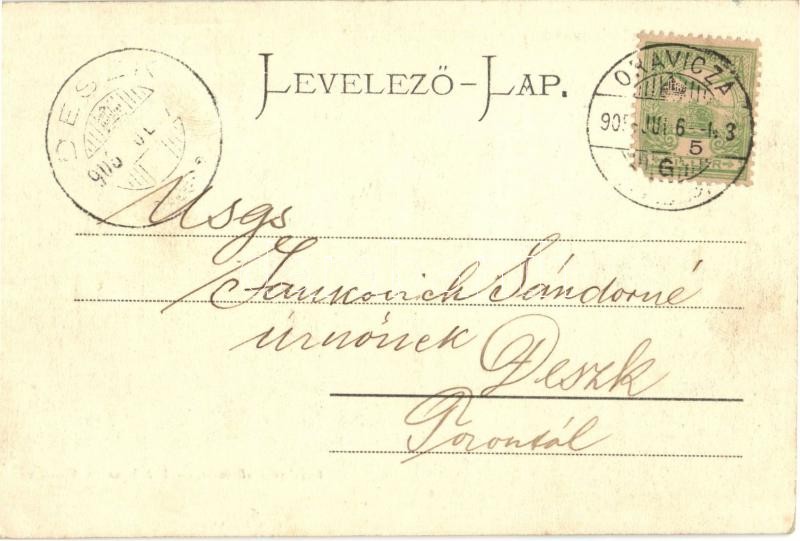 LEVELEZŐ-LAP.
DESZK
905
ORAVICZA
905 JUL 6
5
Usgs
Jankovich Sándorné
úrnőnek Deszk
Torontál